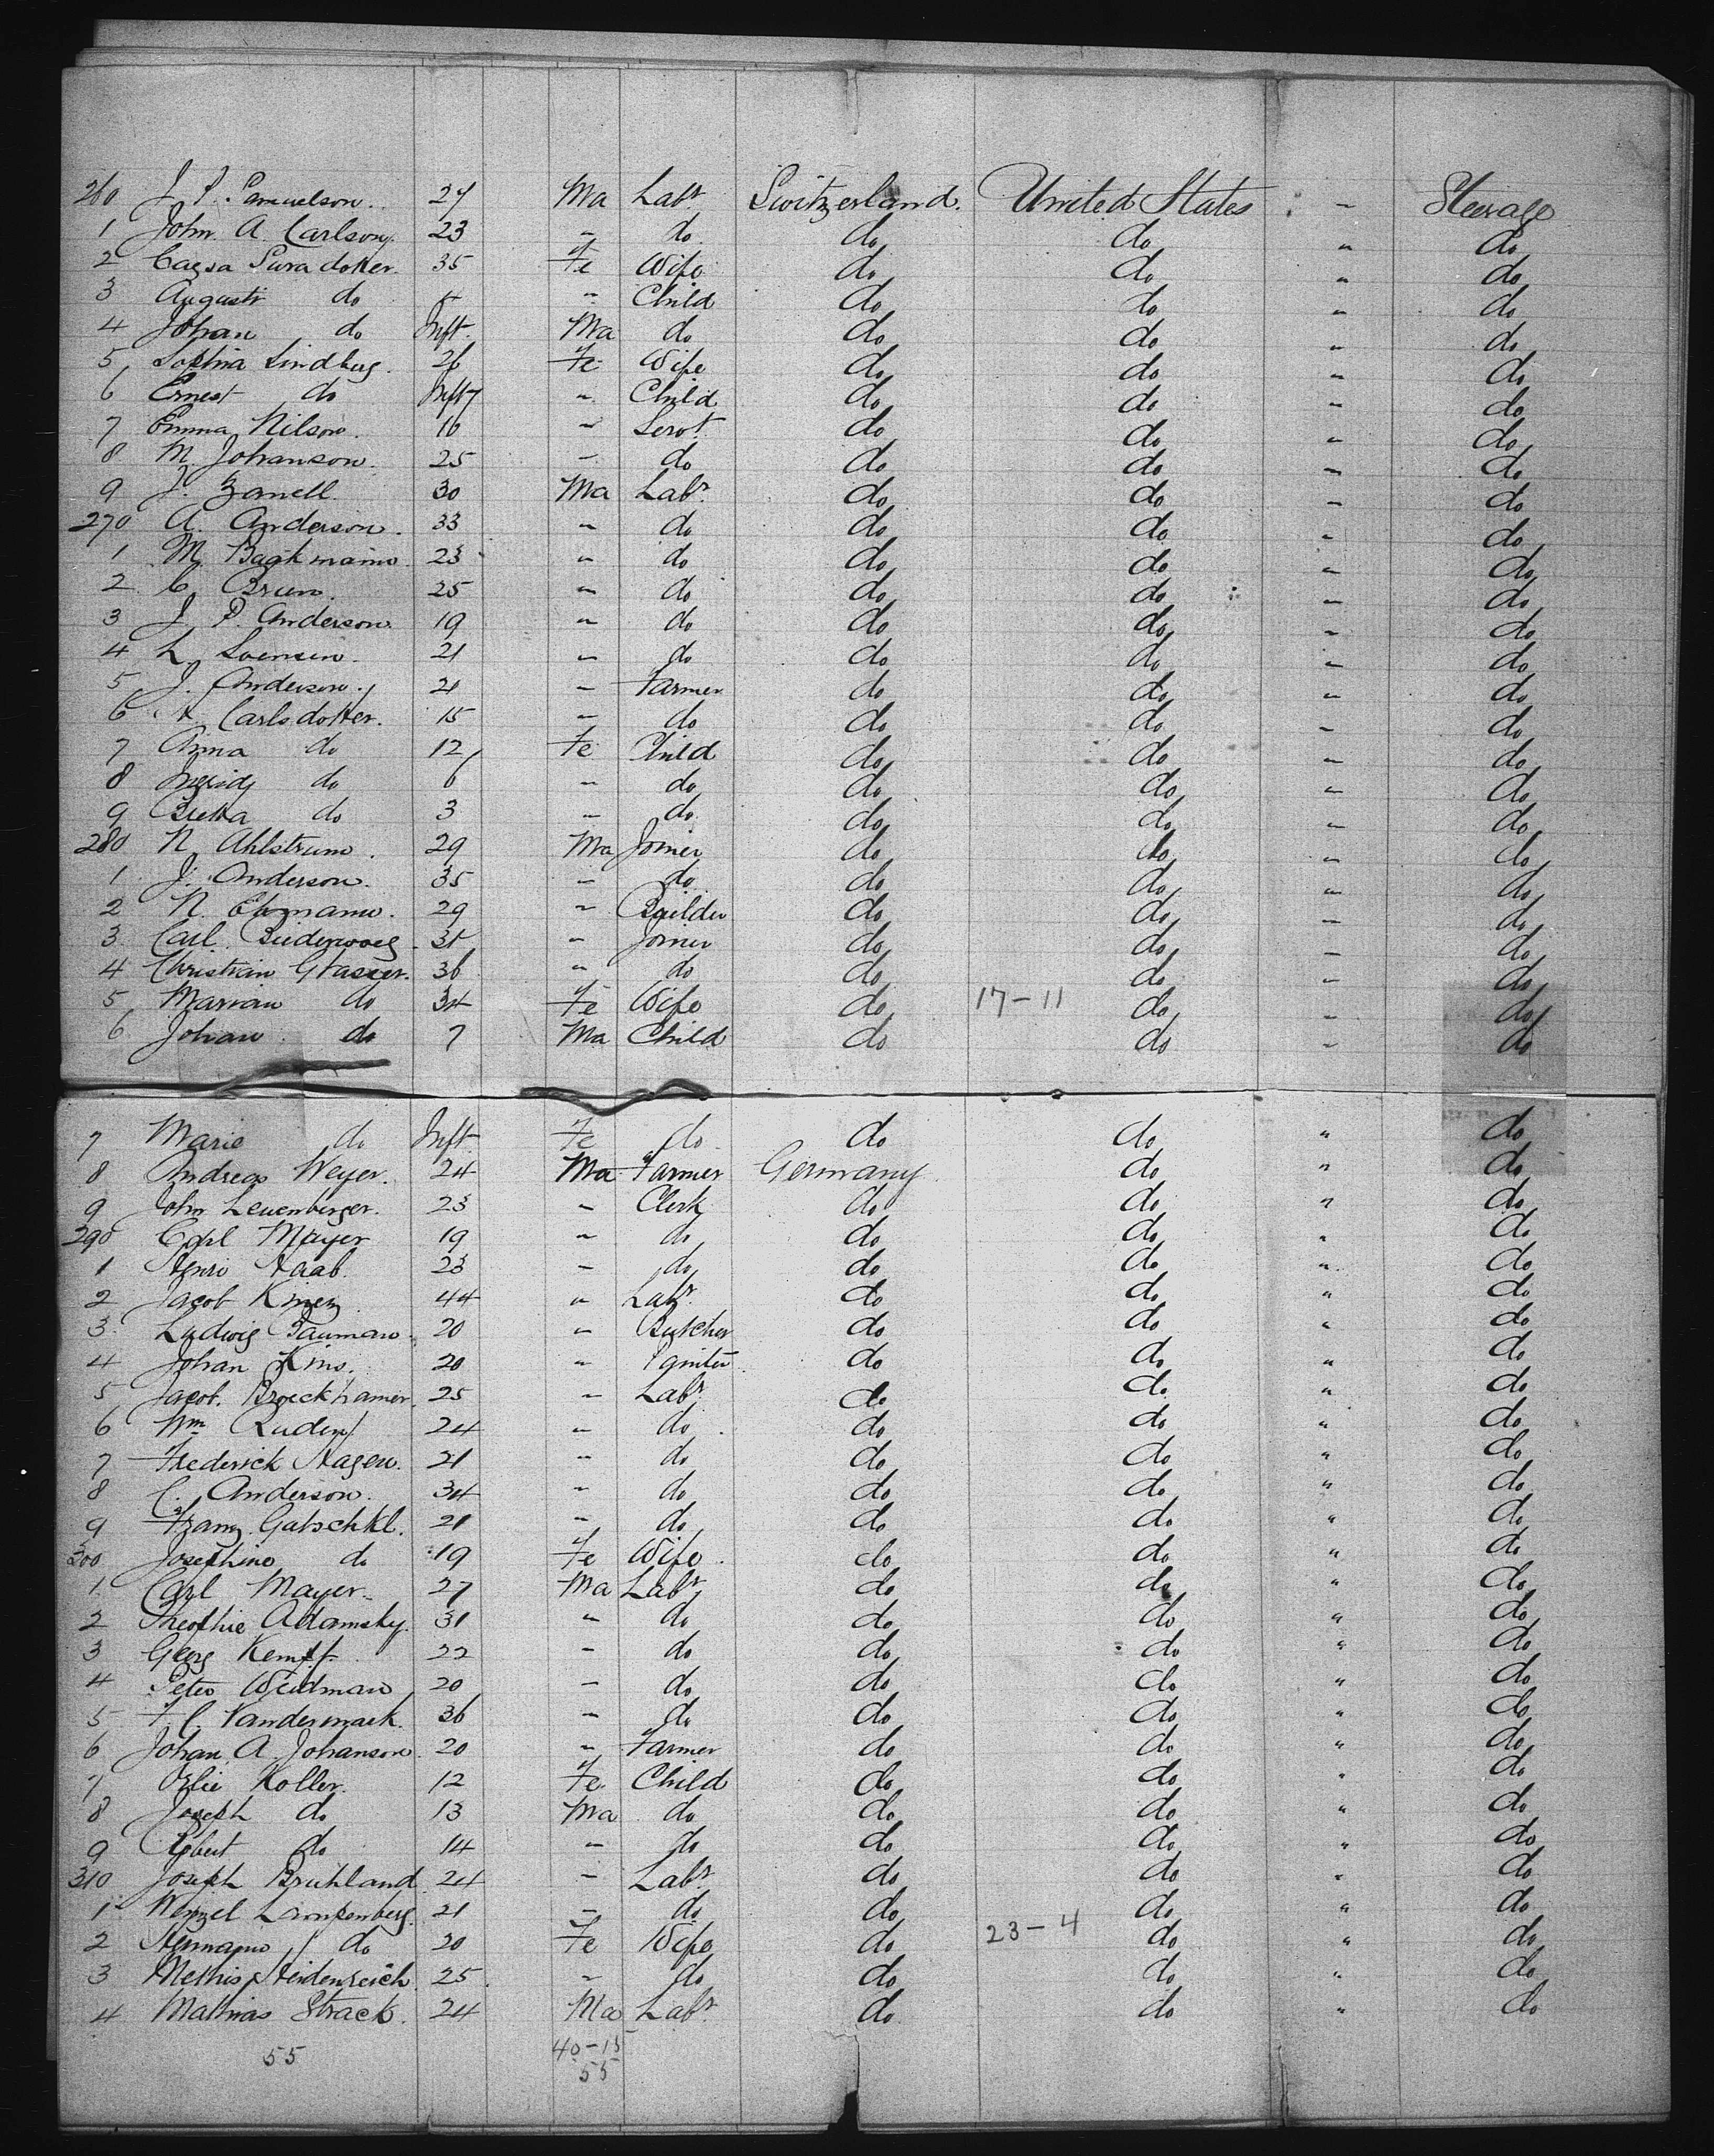 260 J. P. Samuelson. 27 Ma Labr Switzerland. United States - Steerage
1 John A. Carlson. 23 " do do do " do
2 Cajsa Svradotter. 35 Fe Wife do do " do
3 August do " Child do do " do
4 Johan do Inft. Ma do do do " do
5 Sophia Lindberg. 26 Fe Wife do do " do
6 Ernest do Inft " Child do do " do
7 Emma Nilson. 16 " Servt. do do " do
8 M. Johanson. 25 " do do do " do
9 J. Zanell. 30 Ma Labr. do do " do
270 A. Anderson. 33 " do do do " do
1 M. 23 " do do do " do
2 C. Brun. 25 " do do do " do
3 J. P. Anderson. 19 " do do do " do
4 L. 21 " do do do " do
5 J. Anderson. 21 " Farmer do do " do
6 A. Carlsdotter. 15 " do do do " do
7 Anna do 12 Fe Child do do " do
8 Ingrid do 6 " do do do " do
9 Britta do 3 " do do do " do
280 N. Ahlstrum. 29 Ma Joiner do do " do
1 J. Anderson. 35 " do do do " do
2 N. 29 " Builder do do " do
3 Carl Biederwoeg 31 " Joiner do do " do
4 Christian Glasser. 36 " do do do " do
5 Marian do 34 Fe Wife do 17-11 do " do
6 Johan do 7 Ma Child do do " do
7 Marie do Inft. Fe do do do " do
8 Andreas Weyer. 24 Ma Farmer Germany do " do
9 John Leuenberger. 23 " Clerk do do " do
290 Carl Mayer 19 " do do do " do
1 Henri Haab. 23 " do do do " do
2 Jacob 44 " Labr. do do " do
3 Ludwig Bauman. 20 " Butcher do do " do
4 Johan Kins. 20 " Painter do do " do
5 Jacob. Broeckhamer. 25 " Labr. do do " do
6 Wm Ruden 24 " do do do " do
7 Frederick Hagen. 21 " do do do " do
8 C. Anderson. 34 " do do do " do
9 Franz Gatschkl. 21 " do do do " do
300 Josephine do 19 Fe Wife do do " do
1 Carl Mayer. 27 Ma Labr do do " do
2 Theophie Adamsky. 31 " do do do " do
3 Georg Kempf. 22 " do do do " do
4 Peter Weidman 20 " do do do " do
5 F. C. Vandermark. 36 " do do do " do
6 Johan A. Johanson. 20 " Farmer do do " do
7 Ozlie Koller. 12 Fe Child do do " do
8 Joseph do 13 Ma do do do " do
9 Robert do 14 " do do do " do
310 Joseph Bruhland 24 " Labr. do do " do
1 Wenzel Lampenberg. 21 " do do do " do
2 Hermann do 20 Fe Wife do 23-4 do " do
3 Methis Heidenreich 25. " do do do " do
4 Mathias Strack. 24 Ma Labr. do do " do
55 40-15
55